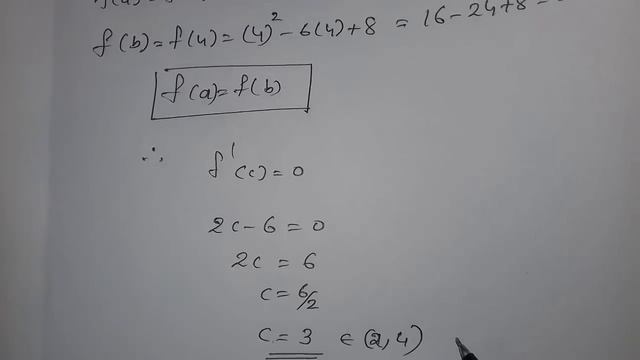 f(b) = f(4) = (4)² - 6(4) + 8 = 16 - 24 + 8 =
f(a) = f(b)
∴ f'(c) = 0
2c - 6 = 0
2c = 6
c = 6/2
c = 3 ∈ (2, 4)